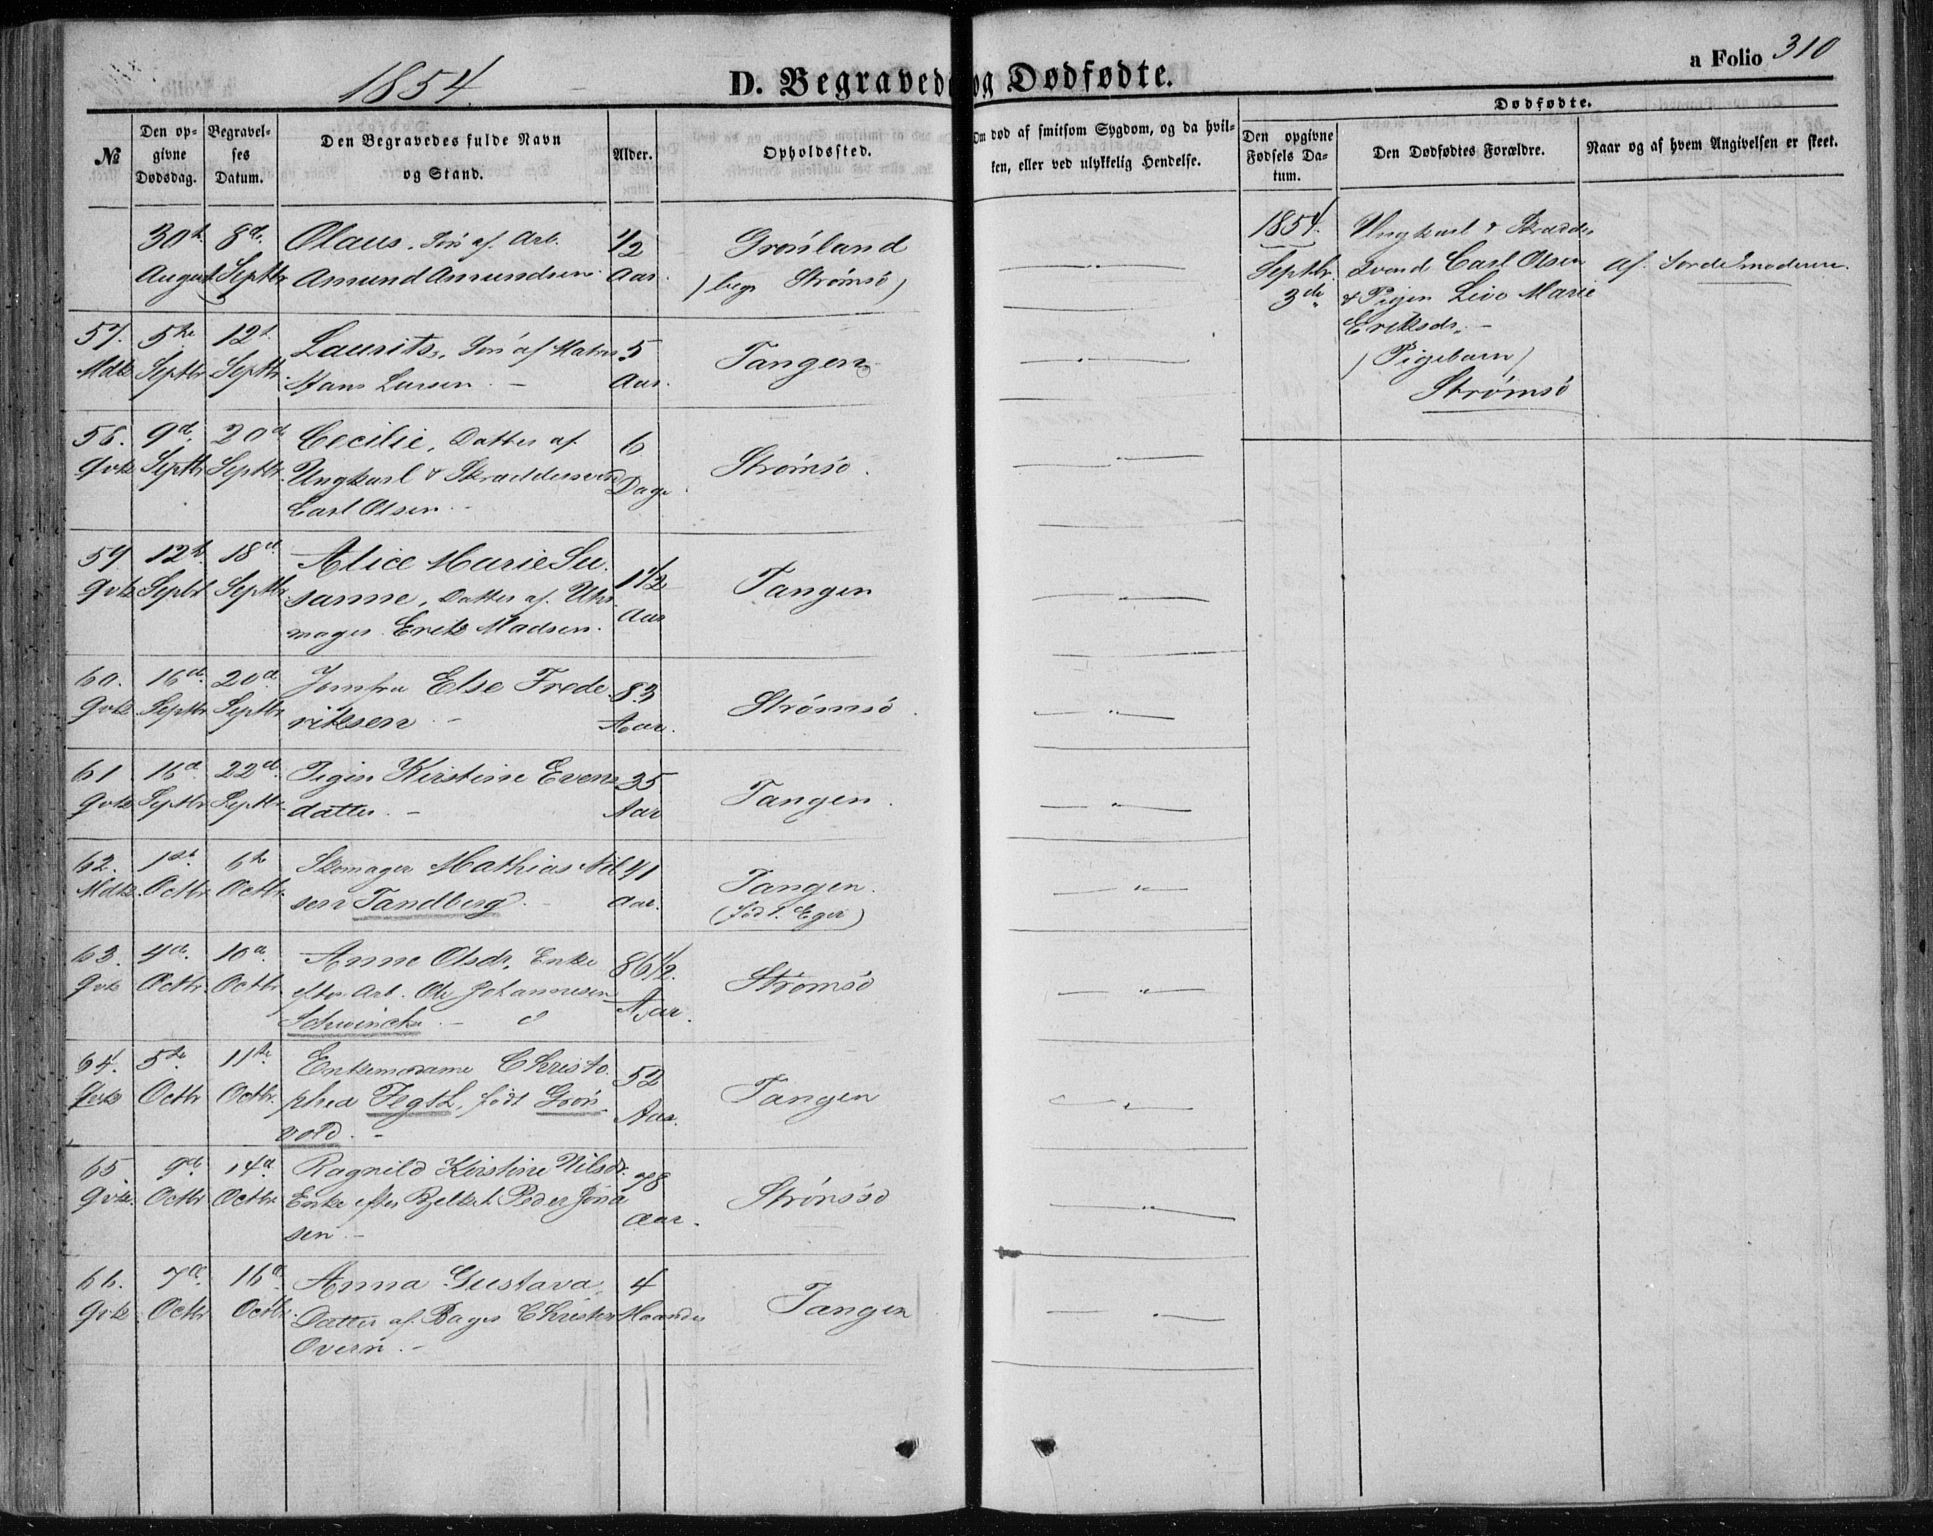 1854.
D. Begravede og Dødfødte.
a Folio 310
№
Den op-
givne
Dødsdag.
Begravel-
ses
Datum.
Den Begravedes fulde Navn
og Stand.
Alder.
Opholdssted.
Om død af smitsom Sygdom, og da hvil-
ken, eller ved ulykkelig Hendelse.
Dødfødte.
Den opgivne
Fødsels Da-
tum.
Den Dødfødtes Forældre.
Naar og af hvem Angivelsen er skeet.
30te 8de Olaus, Søn af Arb. 1/2 Grønland
August Septbr Amund Amundsen. Aar. (begr. Strømsø)
57. 5te 12te Laurits, Søn af Matros 5 Tangen
Mdk Septbr Septbr Hans Larsen. – Aar.
58. 9de 20de Cecilie, Datter af 6 Strømsø.
Qvk Septbr Septbr. Ungkarl & Skræddersvend Dage
Carl Olsen. –
59. 12te 18de Alice Marie Su- 1 1/2 Tangen
Qvk Septbr Septbr. sanne, Datter af Uhr- Aar
mager Erik Madsen.
60. 16de 20de Jomfru Else Frede- 83 Strømsø.
Qvk Septbr Septbr riksen – Aar.
61. 16de 22de Pigen Kirstine Evens- 35 Tangen.
Qvk Septbr Septbr datter. – Aar
62. 1ste 6te Skomager Mathias Nil- 41 Tangen.
Mdk. Octbr. Octbr. sen Tandberg. – Aar. (fød t. Eger)
63. 4de 10de Anne Olsdr, Enke 86 1/2. Strømsø
Qvk Octbr. Octbr efter Arb. Ole Johannesen Aar.
Schwincke. –
64. 5te 11te Enkemadame Christo- 52 Tangen
Qvk Octbr Octbr. phea Fegth, født Grøn- Aar.
vold. –
65 9de 14de Ragnild Kirstine Nilsdr. 78 Strømsø
Qvk. Octbr Octbr. Enke efter Peder Jona- Aar.
sen. –
66. 7de 16de Anna Gustava, 4 Tangen
Qvk Octbr Octbr. Datter af Bager Christen Maaneder
Overn. –
1854. Ungkarl & Skrædder-
Septbr. svend Carl Olsen af Jordemoderen.
3die & Pigen Live Marie
Eriksdr. –
(Pigebarn)
Strømsø